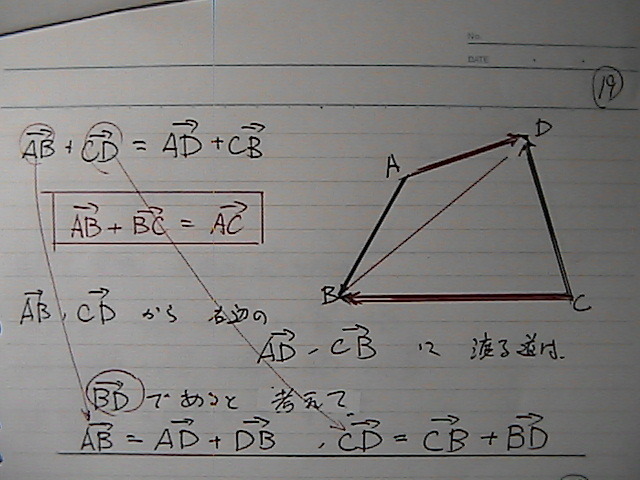 No.
DATE
19
AB→ + CD→ = AD→ + CB→
AB→ + BC→ = AC→
A
D
B
C
AB→, CD→ から 右辺の
AD→, CB→ に 渡る道は、
BD→ であると 考えて
AB→ = AD→ + DB→ , CD→ = CB→ + BD→